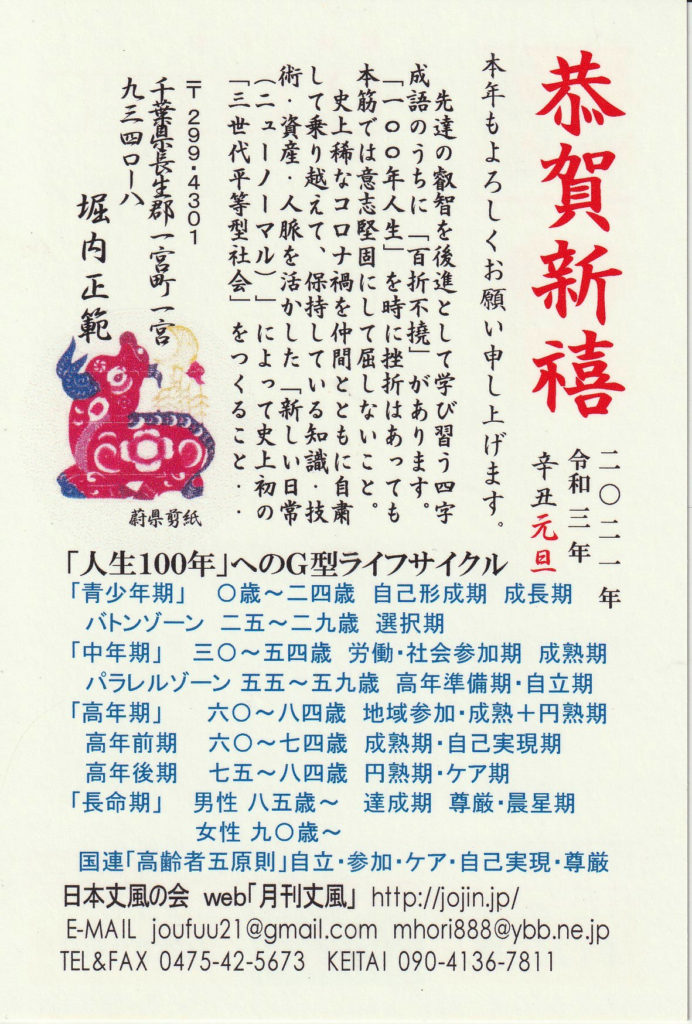 恭賀新禧
二〇二一年
令和三年
辛丑元旦
本年もよろしくお願い申し上げます。
先達の叡智を後進として学び習う四字
成語のうちに「百折不撓」があります。
「一〇〇年人生」を時に挫折はあっても
本筋では意志堅固にして屈しないこと。
史上稀なコロナ禍を仲間とともに自粛
して乗り越えて、保持している知識・技
術・資産・人脈を活かした「新しい日常
(ニューノーマル)」によって史上初の
「三世代平等型社会」をつくること・・
〒299・4301
千葉県長生郡一宮町一宮
九三四〇ー八
堀内正範
蔚県剪紙
「人生100年」へのG型ライフサイクル
「青少年期」 〇歳～二四歳 自己形成期 成長期
バトンゾーン 二五～二九歳 選択期
「中年期」 三〇～五四歳 労働・社会参加期 成熟期
パラレルゾーン 五五～五九歳 高年準備期・自立期
「高年期」 六〇～八四歳 地域参加・成熟＋円熟期
高年前期 六〇～七四歳 成熟期・自己実現期
高年後期 七五～八四歳 円熟期・ケア期
「長命期」 男性 八五歳～ 達成期 尊厳・晨星期
女性 九〇歳～
国連「高齢者五原則」自立・参加・ケア・自己実現・尊厳
日本丈風の会 web「月刊丈風」 http://jojin.jp/
E-MAIL joufuu21@gmail.com mhori888@ybb.ne.jp
TEL&FAX 0475-42-5673 KEITAI 090-4136-7811